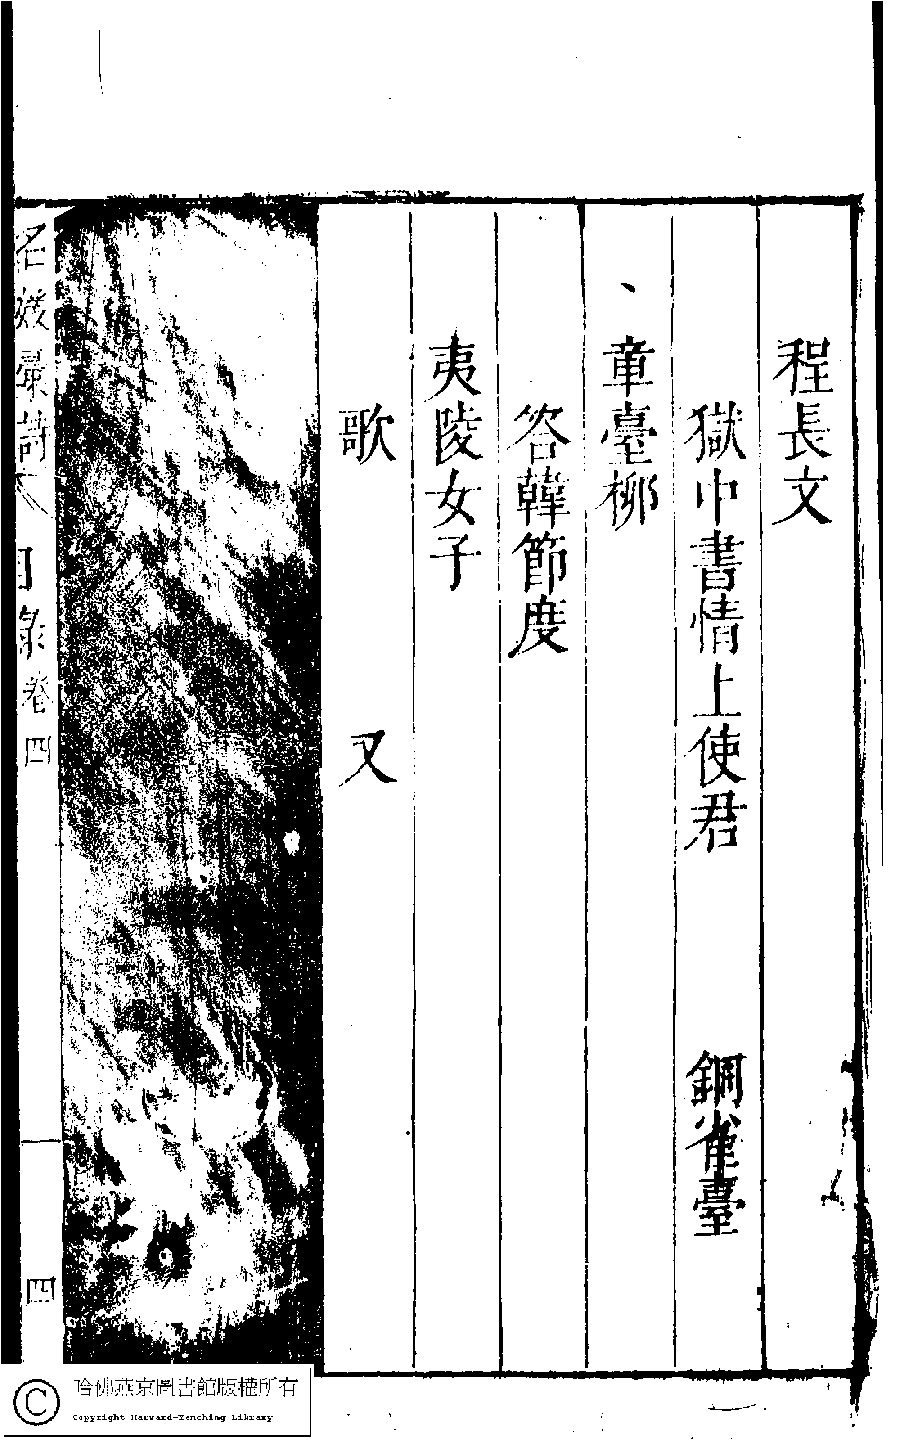 程長文
獄中書情上使君 銅雀臺
章臺柳
答韓節度
夷陵女子
歌 又
名媛彙詩 目錄卷四
四
哈佛燕京圖書館版權所有
Copyright Harvard-Yenching Library